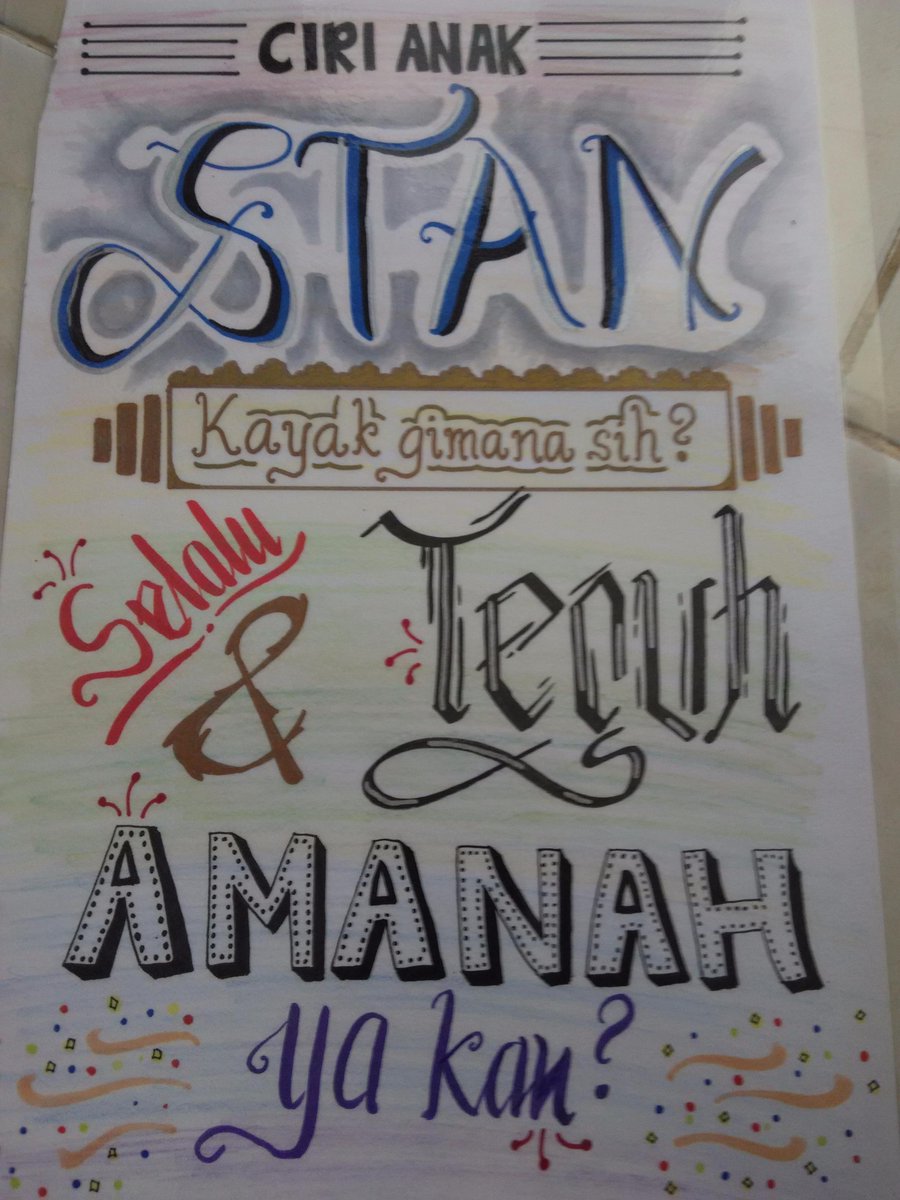 CIRI ANAK
STAN
Kayak gimana sih?
Selalu Teguh
&
AMANAH
ya kan?